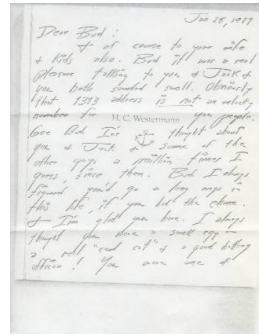 Jan 28, 1977
Dear Bud:
& of course to your wife
& kids also. Bud it was a real
pleasure talking to you & Jack &
you both sounded swell. Obviously
that 1393 address is not an unlucky
number for you people.
H. C. Westermann
Gee Bud I've thought about
you & Jack & some of the
other guys a million times I
guess, since then. Bud I always
figured you'd go a long ways in
this life, if you had the chance.
& I'm glad you have. I always
thought you were a swell egg —
a real "cool cat" & a good
officer! You were one of